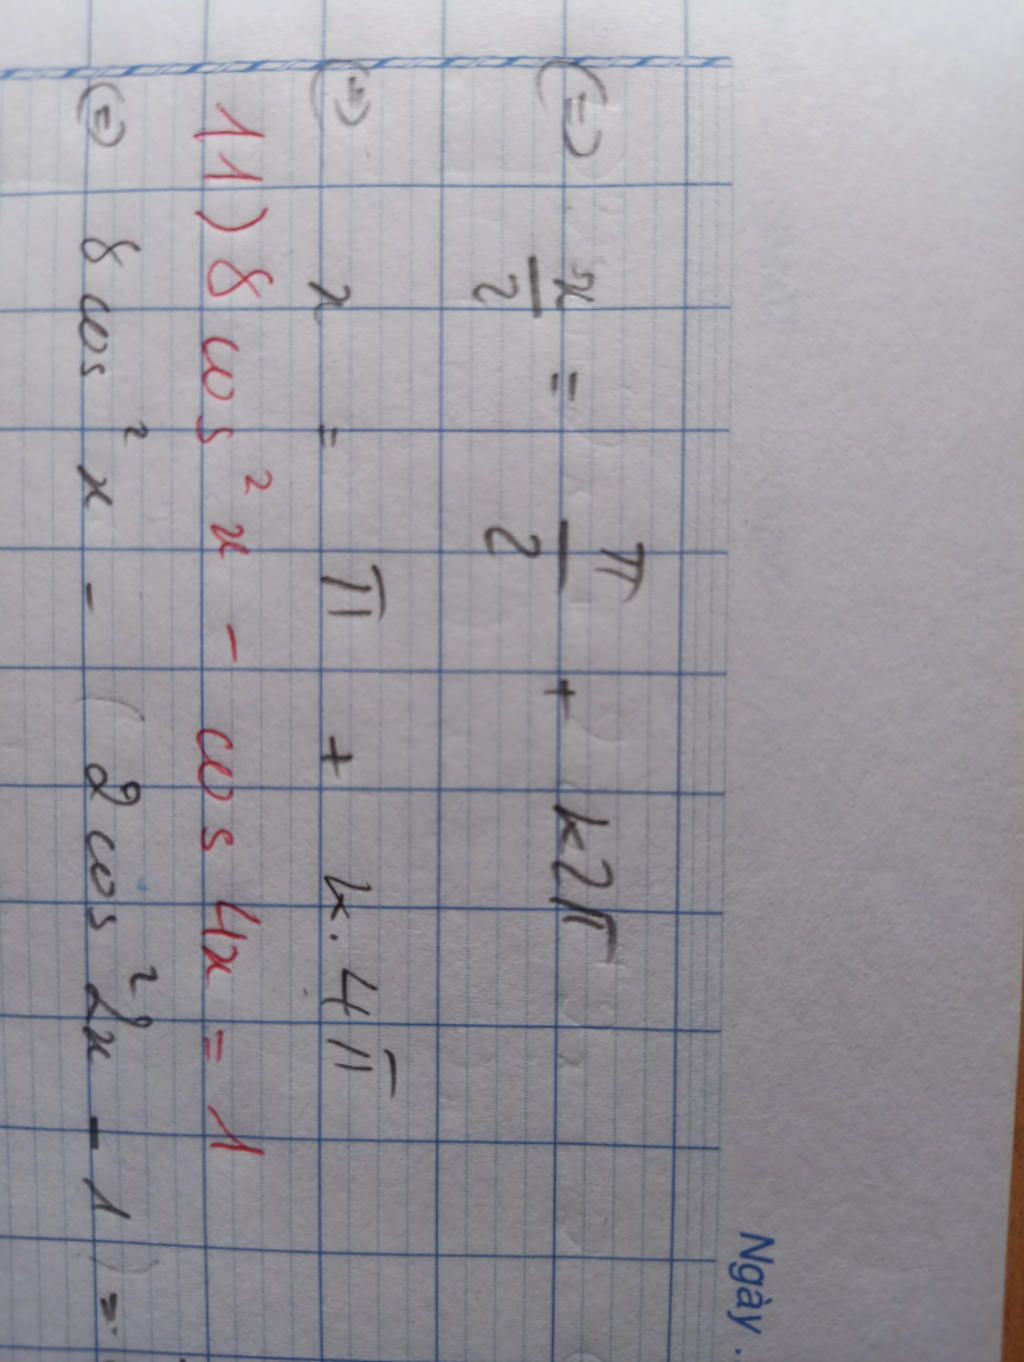 Ngày .
(=) x/2 = π/2 + k2π
(=) x = π + k.4π
11) 8 cos²x - cos 4x = 1
(=) 8 cos²x - (2 cos²2x - 1) =